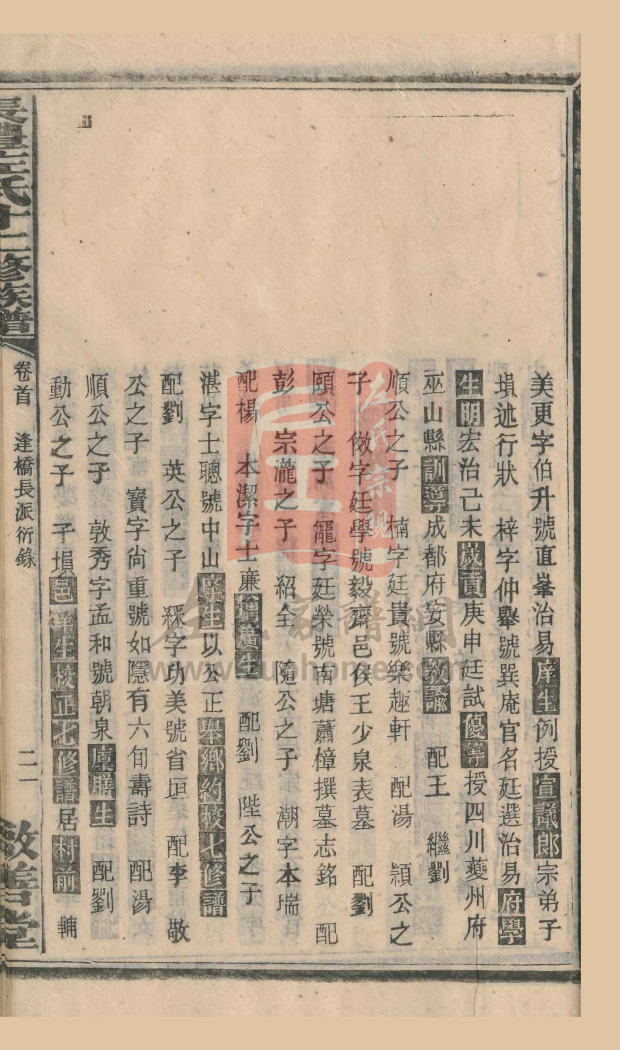 美更字伯升號直峯治易庠生例授宣議郎宗弟子
塤述行狀 梓字仲舉號巽庵官名廷選治易府學
生明宏治己未歲貢庚申廷試優等授四川夔州府
巫山縣訓導成都府安縣教諭 配王 繼劉
順公之子 楠字廷貴號樂趣軒 配湯 頴公之
子 倣字廷學號毅齊邑侯王少泉表墓 配劉
頤公之子 寵字廷榮號南塘蕭樟撰墓志銘 配
彭 宗瀧之子 紹全 隨公之子 潮字本瑞
配楊 本潔字士廉增廣生 配劉 陛公之子
湛字士聰號中山庠生以公正舉鄉約校七修譜
配劉 英公之子 綵字功美號省垣 配李 敬
公之子 寳字尙重號如隱有六旬壽詩 配湯
順公之子 敦秀字孟和號朝泉廩膳生 配劉
動公之子 子塤邑庠生校正七修譜居村前 輔
左氏十二修族譜
卷首 逢橋長派衍錄
二一
敦善堂
www.ouphome.com